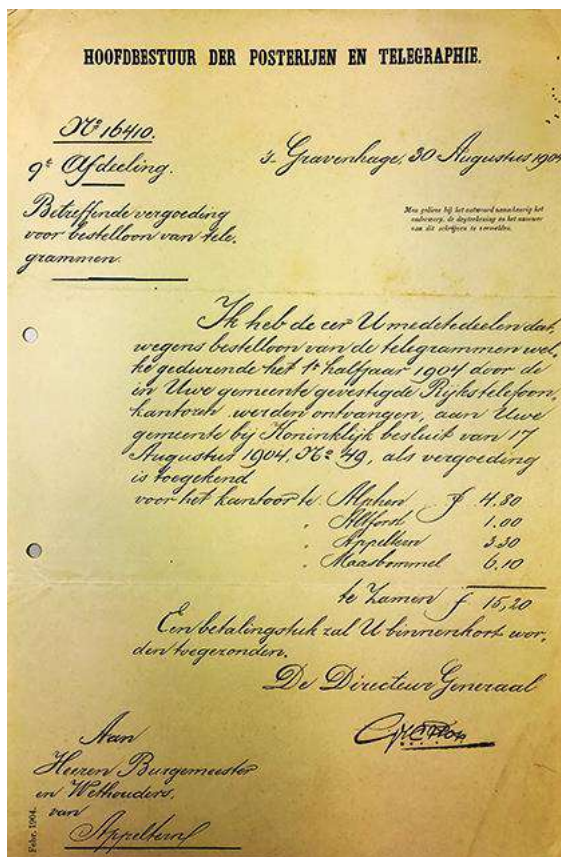 HOOFDBESTUUR DER POSTERIJEN EN TELEGRAPHIE.
No 16410.
9e Afdeeling.
's-Gravenhage, 30 Augustus 1904
Betreffende vergoeding
voor bestelloon van tele-
grammen.
Men gelieve bij het antwoord nauwkeurig het
onderwerp, de dagteekening en het nummer
van dit schrijven te vermelden.
Ik heb de eer U mede te deelen dat,
wegens bestelloon van de telegrammen wel-
ke gedurende het 1e halfjaar 1904 door de
in Uwe gemeente gevestigde Rijkstelefoon-
kantoren werden ontvangen, aan Uwe
gemeente bij Koninklijk besluit van 17
Augustus 1904, No 49, als vergoeding
is toegekend
voor het kantoor te Alphen f 4.80
" Altforst 1.00
" Appeltern 3.30
" Maasbommel 6.10
te zamen f 15,20
Een betalingstuk zal U binnenkort wor-
den toegezonden.
De Directeur Generaal
Aan
Heeren Burgemeester
en Wethouders,
van
Appeltern
Febr. 1904.